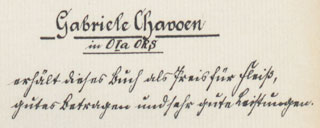 Gabriele
in OIa
erhält dieses Buch als Preis für Fleiß,
gutes Betragen und sehr gute Leistungen.